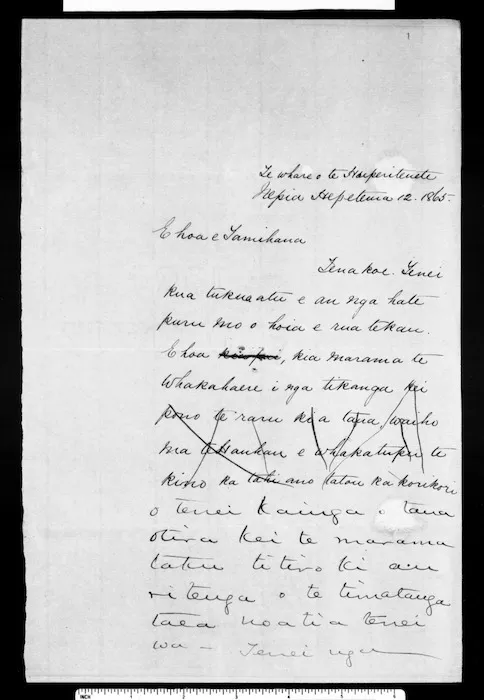 1
Te whare o te Huperitenete
Nepia Hepetema 12. 1865.
E hoa e Tamihana
Tena koe. Tenei
kua tukua atu e au nga hate
puru mo o hoia e rua tekau.
E hoa kia pai, kia marama te
whakahaere i nga tikanga kei
pono te raru kia tatou, waiho
ma te Hauhau e whakatupu te
kino ka tahi ano tatou ka korikori
o tenei kainga o taua
otira kei te marama
taku titiro ki au
ritenga o te timatanga
taea noatia tenei
wa — Tenei nga
INCH 1 2 3 4 5 6